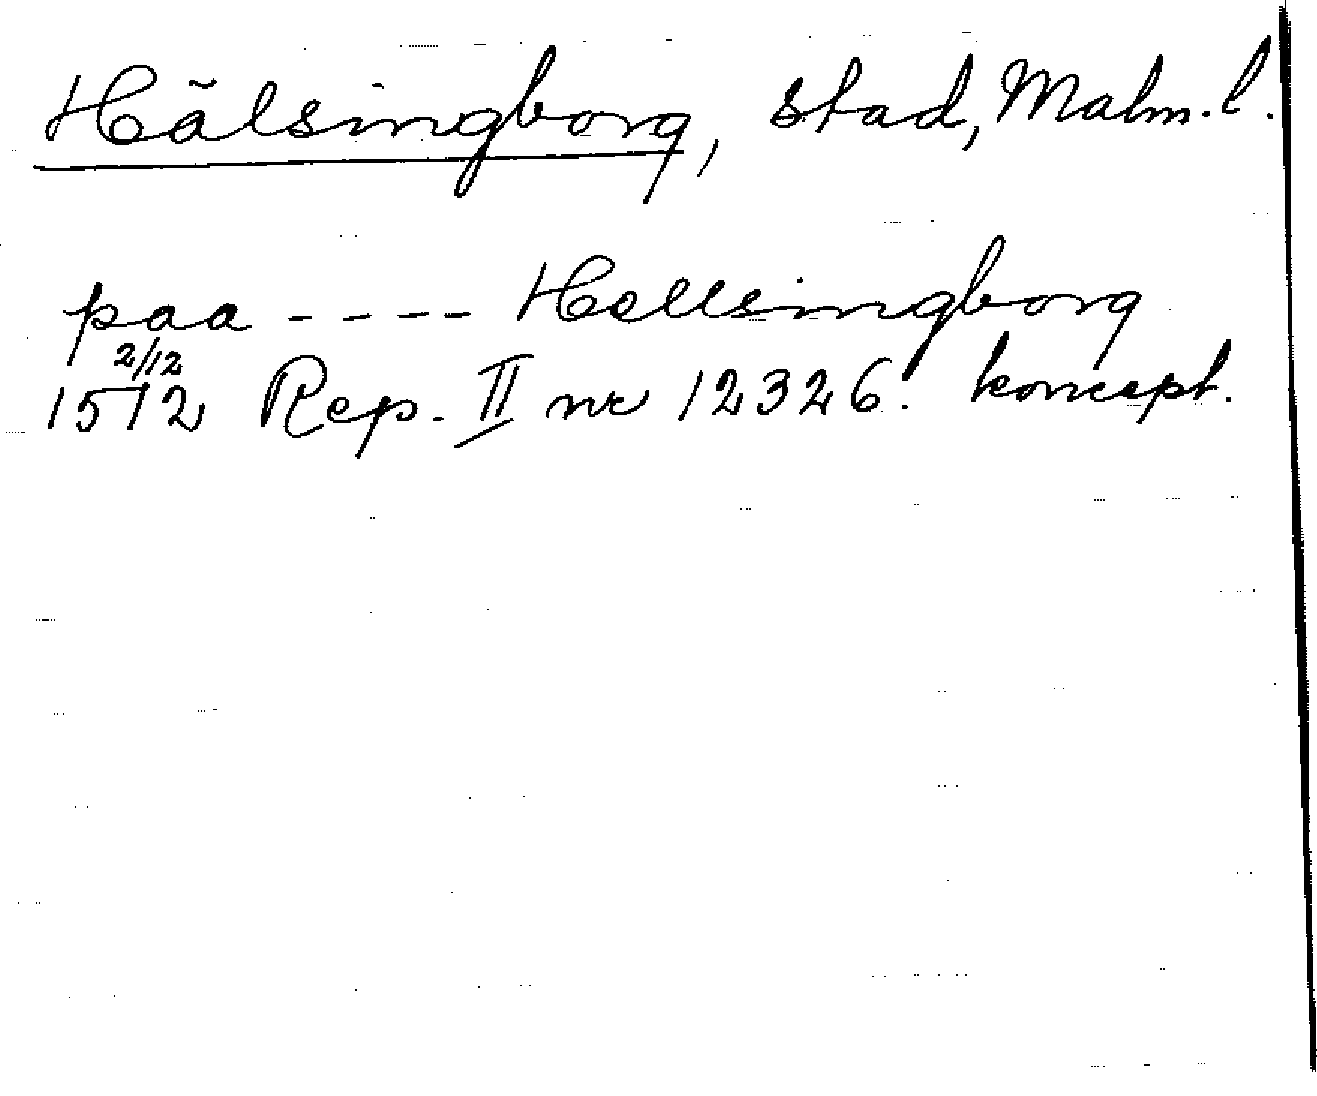 Hälsingborg, stad, Malm. l.
paa ---- Hellsingborg
2/12
1512 Rep. II nr 12326. koncept.